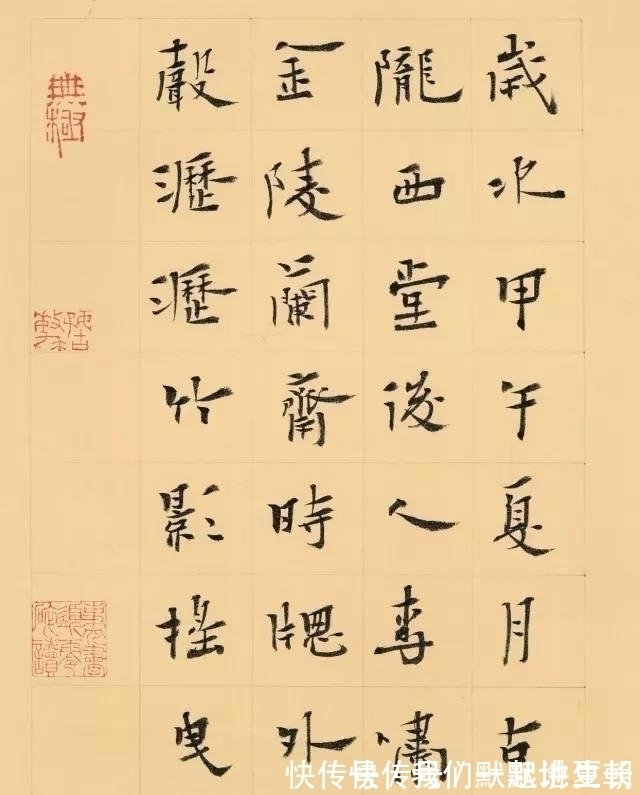 歲次甲午夏月古
隴西堂後人李嘯
金陵蘭齋時牕外
聲瀝瀝竹影搖曳
無極
快传